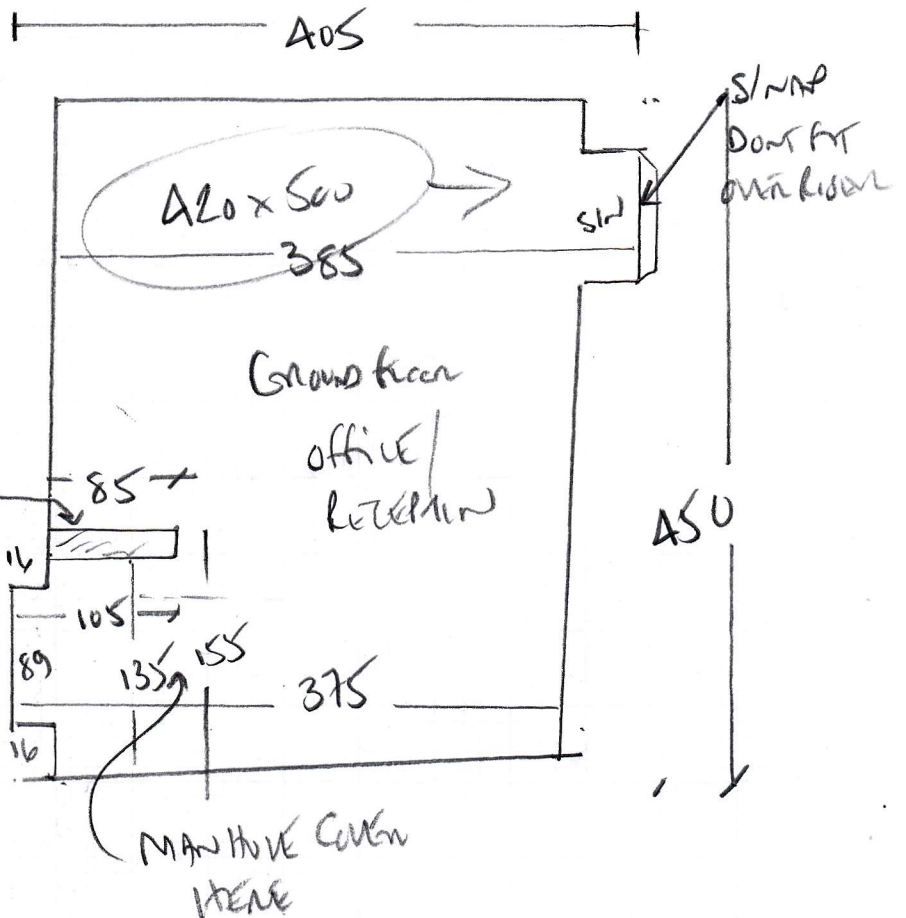 405
S/NAP
DONT FIT
OVER RISER
420 x 500
S/N
385
GROUND FLOOR
OFFICE/
RECEPTION
85
450
16
105
89
135
155
375
16
MANHOLE COVER
HERE